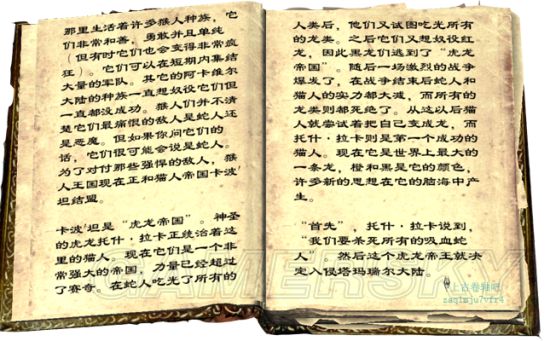 那里生活着许多猴人种族，它
们非常和善，勇敢并且单纯
（但有时它们也会变得非常疯
狂）。它们可以在短期内集结
大量的军队。其它的阿卡维尔
大陆的种族一直想奴役它们但
一直都没成功。猴人们并不清
楚它们最痛恨的敌人是蛇人还
是恶魔。但如果你问它们的
话，它们很可能会说是蛇人。
为了对付那些强悍的敌人，猴
人王国现在正和猫人帝国卡波'
坦结盟。
卡波'坦是“虎龙帝国”。神圣
的虎龙托什·拉卡正统治着这
里的猫人。现在它们是一个非
常强大的帝国，力量已经超过
了赛奇。在蛇人吃光了所有的
人类后，他们又试图吃光所有
的龙类。之后它们又想奴役红
龙，因此黑龙们逃到了“虎龙
帝国”。随后一场激烈的战争
爆发了，在战争结束后蛇人和
猫人的实力都大减，而所有的
龙类则都死绝了。从这以后猫
人就尝试着把自己变成龙，而
托什·拉卡则是第一个成功的
猫人。现在它是世界上最大的
一条龙，橙和黑是它的颜色，
许多新的思想在它的脑海中产
生。
“首先”，托什·拉卡说到，
“我们要杀死所有的吸血蛇
人”。然后这个虎龙帝王就决
定入侵塔玛瑞尔大陆。
GAMERSKY
上古卷轴吧
zaqimju7vfr4